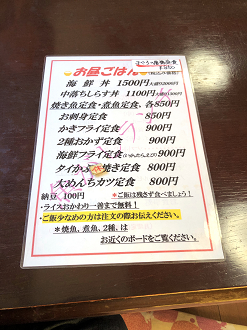 お昼ごはん
海鮮丼 1500円
中落ちしらす丼 1100円
焼き魚定食・煮魚定食、各850円
お刺身定食 850円
かきフライ定食 900円
2種おかず定食 900円
海鮮フライ定食 900円
タイかぶと焼き定食 800円
大めんちカツ定食 800円
納豆 100円 *ご飯は残さず食べましょう!
・ライスおかわり一善まで無料!
・ご飯少なめの方は注文の際お伝えください。
*焼魚、煮魚、2種、は
お近くのボードをご覧ください。